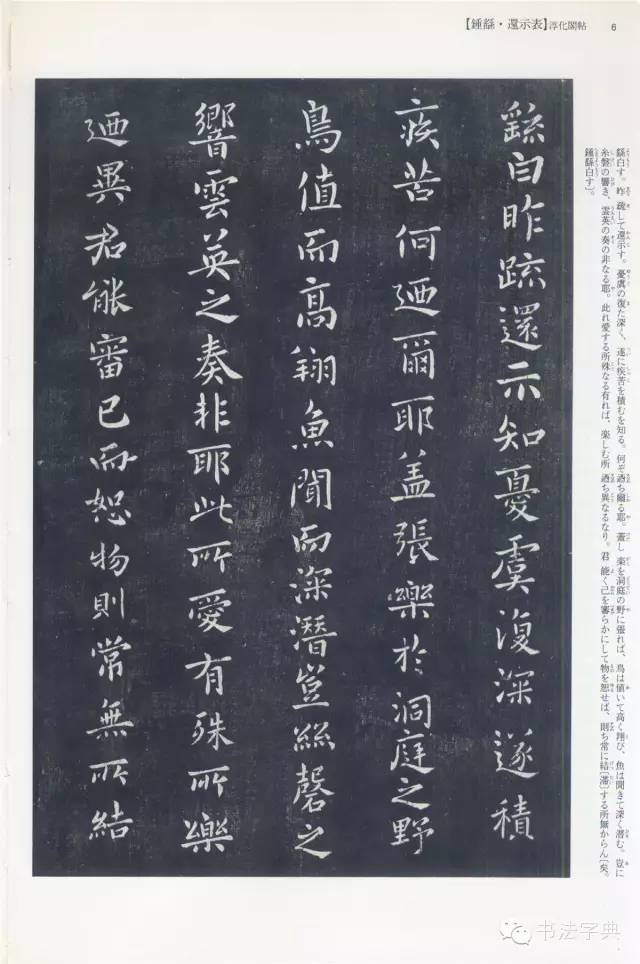 【鍾繇・還示表】淳化閣帖
6
繇白す。昨疏して還示す。憂虞の復た深く、遂に疾苦を積むを知る。何ぞ迺ち爾る耶。蓋し楽を洞庭の野に張れば、鳥は値いて高く翔び、魚は聞きて深く潜む。豈に
糸磬の響き、雲英の奏の非なる耶。此れ愛する所殊なる有れば、楽しむ所迺ち異なるなり。君能く己を審らかにして物を恕せば、則ち常に結〔滞〕する所無からん〔矣。
鍾繇白す〕。
繇白昨疏還示知憂虞復深遂積
疾苦何迺爾耶蓋張樂於洞庭之野
鳥值而高翔魚聞而深潛豈絲磬之
響雲英之奏非耶此所愛有殊所樂
迺異君能審己而恕物則常無所結
书法字典